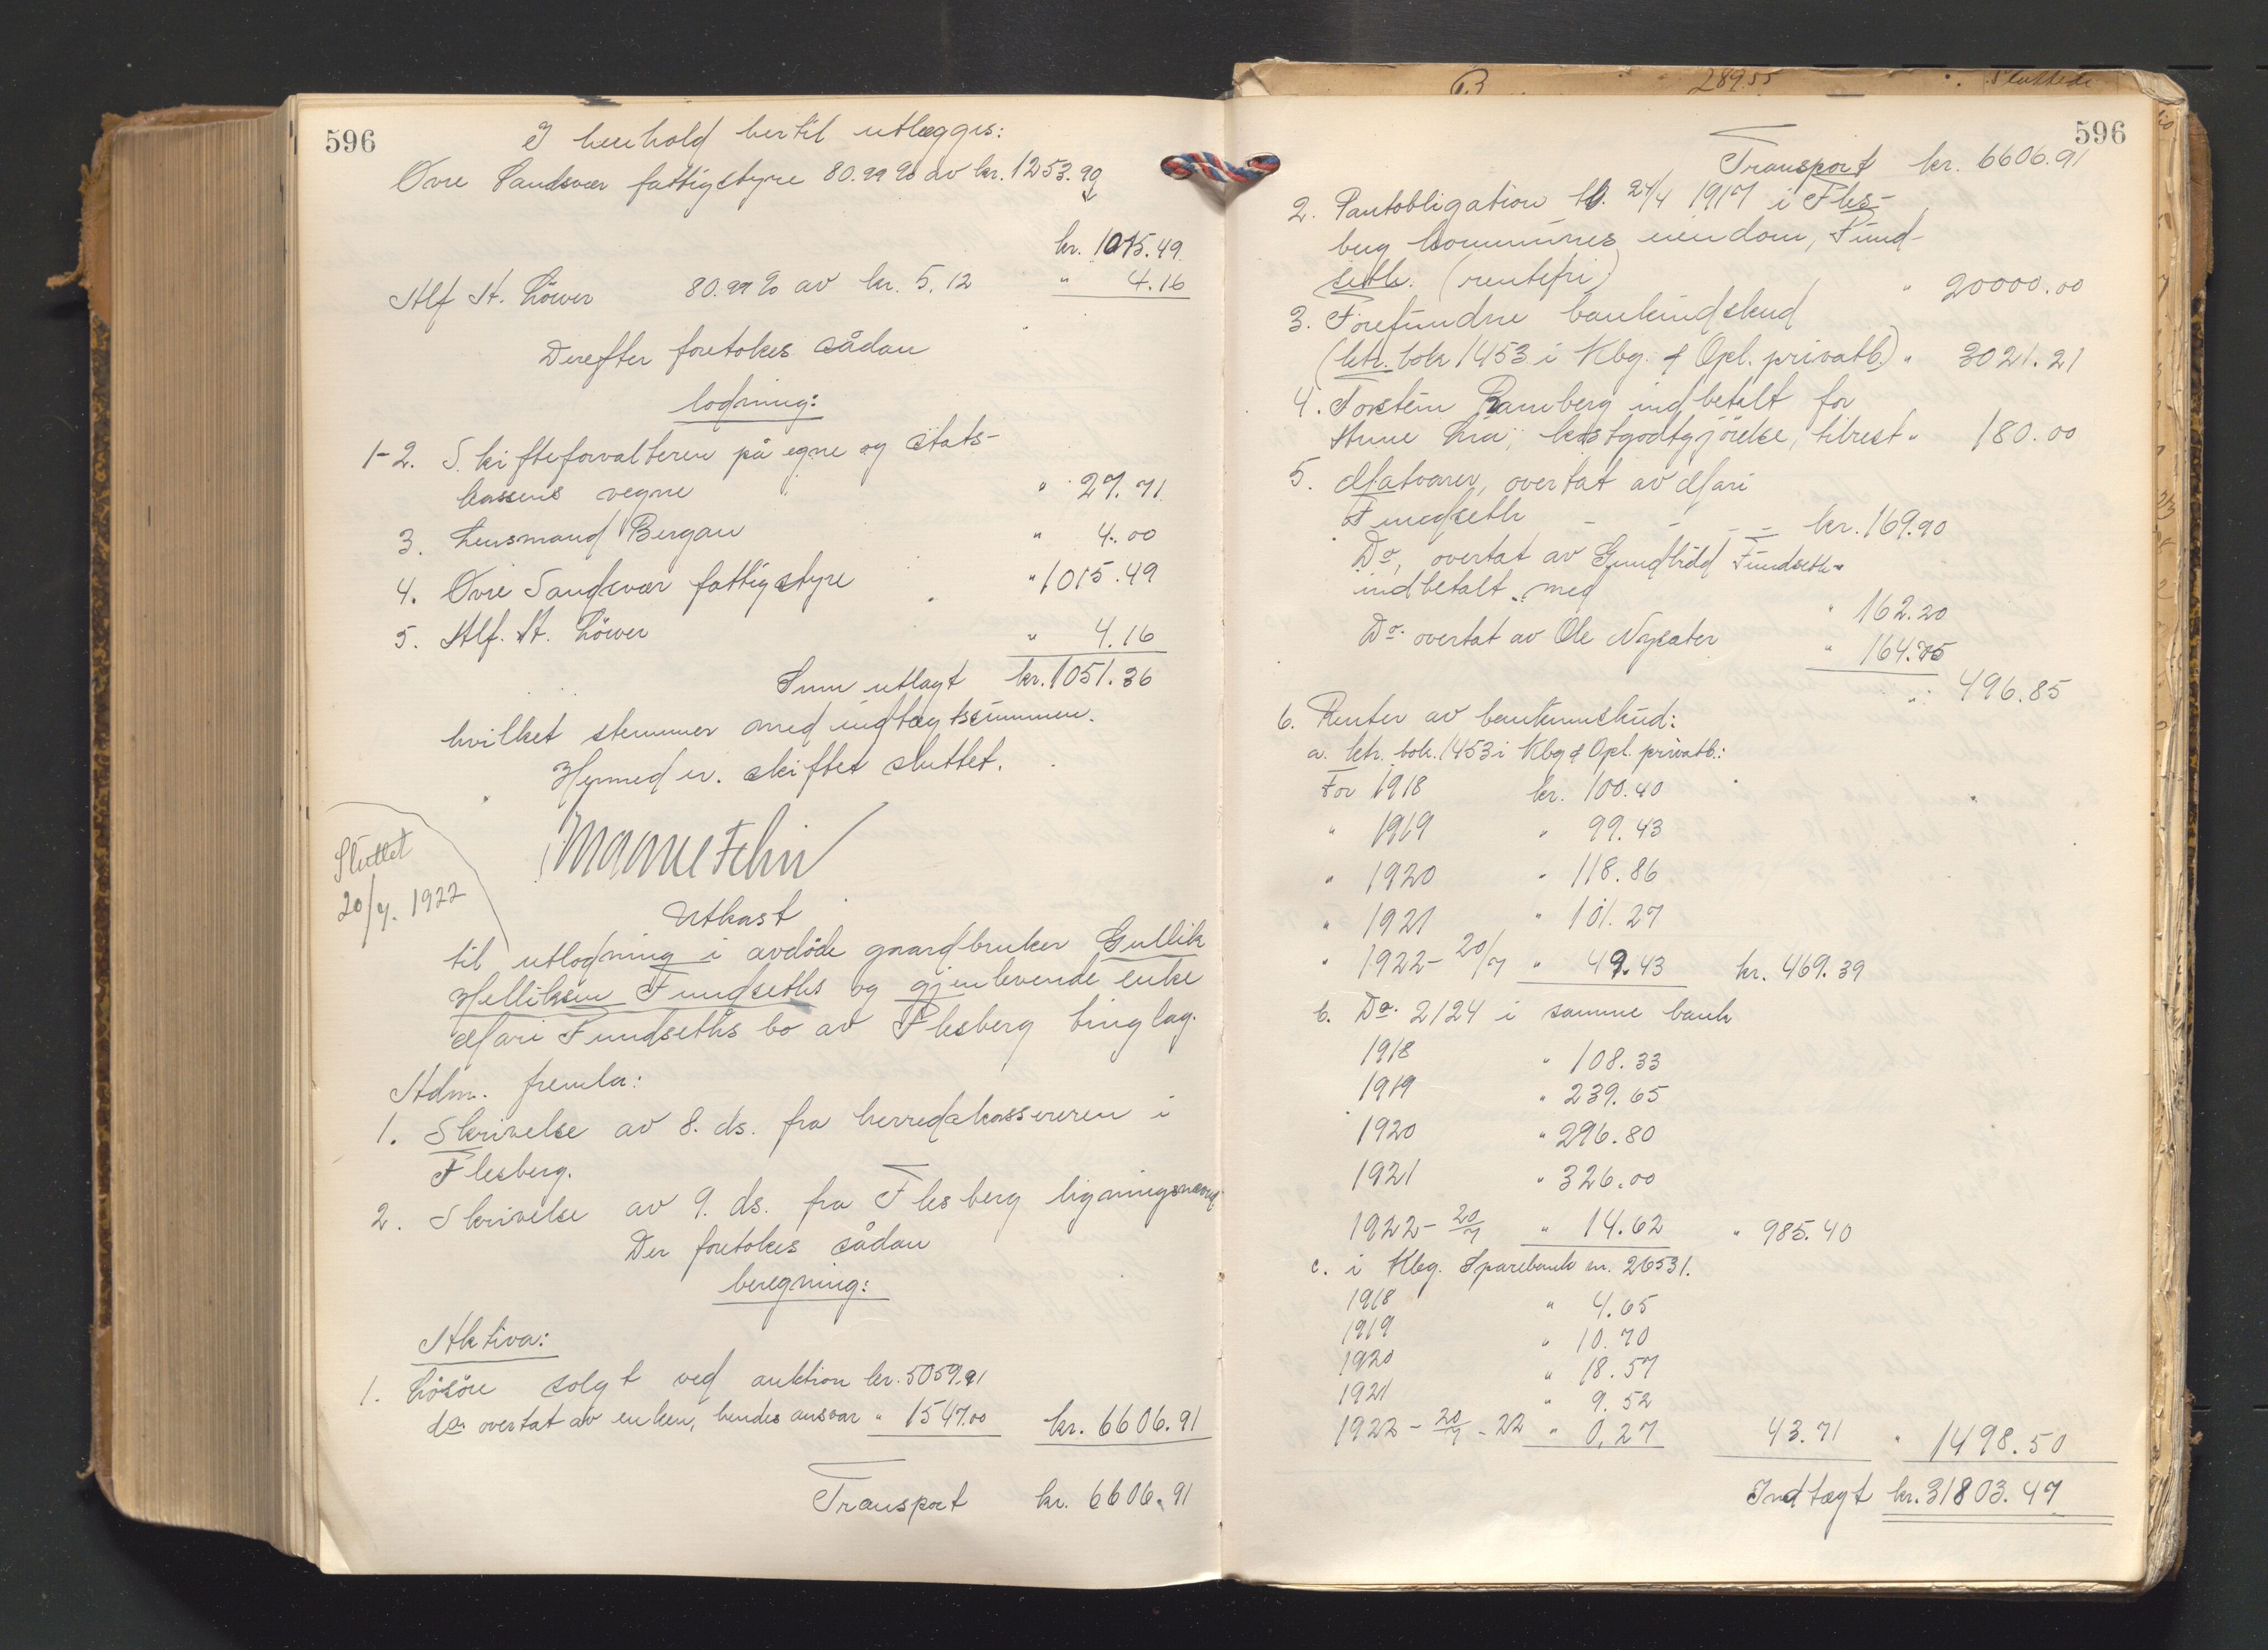 596
I henhold hertil utlægges:
Øvre Sandsvær fattigstyre 80.99 % av kr. 1253.99
kr. 1015.49
Alf A. Löwer 80.99 % av kr. 5.12 " 4.16
Derefter foretokes sådan
lodning:
1-2. Skifteforvalteren på egne og stats-
kassens vegne " 27.71
3. Lensmand Bergan " 4.00
4. Øvre Sandsvær fattigstyre " 1015.49
5. Alf. A. Löwer " 4.16
Sum utlagt kr. 1051.36
hvilket stemmer med indtægtssummen.
Hermed er skiftet sluttet.
Sluttet
20/7. 1922
Utkast
til utlodning i avdöde gaardbruker Gullik
Helliksen Fundseths og gjenlevende enke
Mari Fundseths bo av Flesberg tinglag.
Adm. fremla:
1. Skrivelse av 8. ds. fra herredskassereren i
Flesberg.
2. Skrivelse av 9. ds. fra Flesberg ligningsnævnd
Der foretokes sådan
beregning:
Aktiva:
1. Lösöre solgt ved auktion kr. 5059.91
do. overtat av enken, hendes ansvar " 1547.00 kr. 6606.91
Transport kr. 6606.91
28955
Sluttede
596
Transport kr. 6606.91
2. Pantobligation tl. 24/4 1917 i Fles-
berg kommunes eiendom, Fund-
seth. (rentefri) " 20000.00
3. Forefundne bankindskud
(ktr. bok 1453 i Kbg. & Opl. privatb.) " 3021.21
4. Torstein Ramberg indbetalt for
Anne Lia, kostgodtgjörelse, tilrest " 180.00
5. Matvarer, overtat av Mari
Fundseth - - - - kr. 169.90
Do, overtat av Gundhild Fundseth
indbetalt med " 162.20
Do. overtat av Ole Nysæter " 164.75
" 496.85
6. Renter av bankinnskud:
a. ktr. bok. 1453 i Kbg & Opl. privatb.:
For 1918 kr. 100.40
" 1919 " 99.43
" 1920 " 118.86
" 1921 " 101.27
" 1922- 20/7 " 49.43 kr. 469.39
b. Do. 2124 i samme bank
1918 " 108.33
1919 " 239.65
1920 " 296.80
1921 " 326.00
1922- 20/7 " 14.62 " 985.40
c. i Kbg. Sparebank nr. 26531.
1918 " 4.65
1919 " 10.70
1920 " 18.57
1921 " 9.52
1922 - 20/7 - 22 " 0.27 43.71 " 1498.50
Indtægt kr. 31803.47